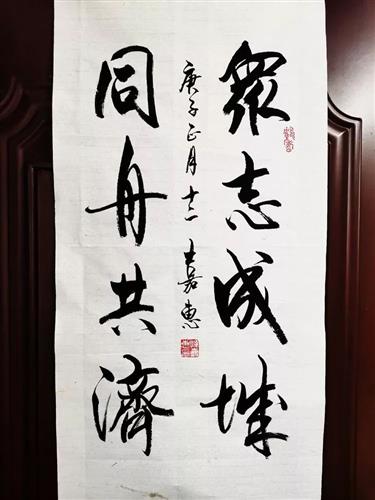 眾志成城
同舟共濟
庚子正月十二嘉惠